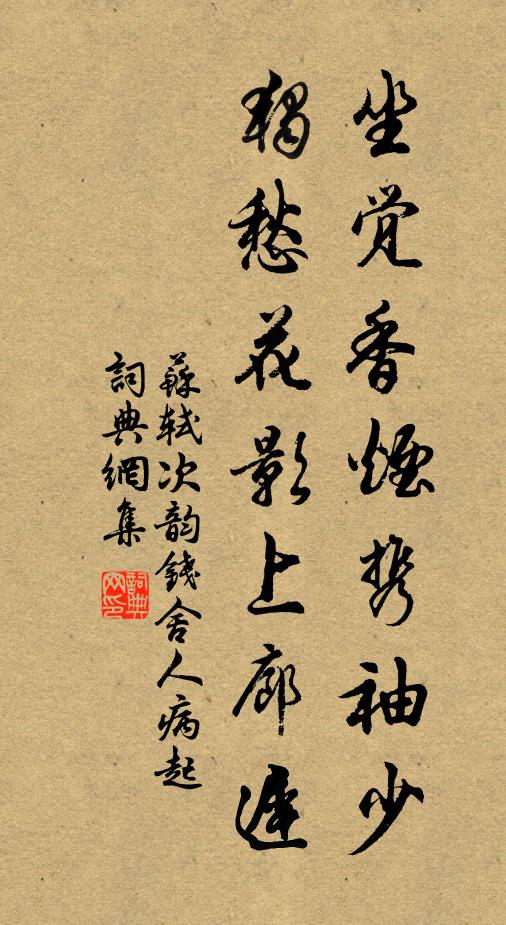 坐觉香煙携袖少
獨愁花影上廊遲
蘇軾次韵錢舍人病起
詞典網集
詞典网印